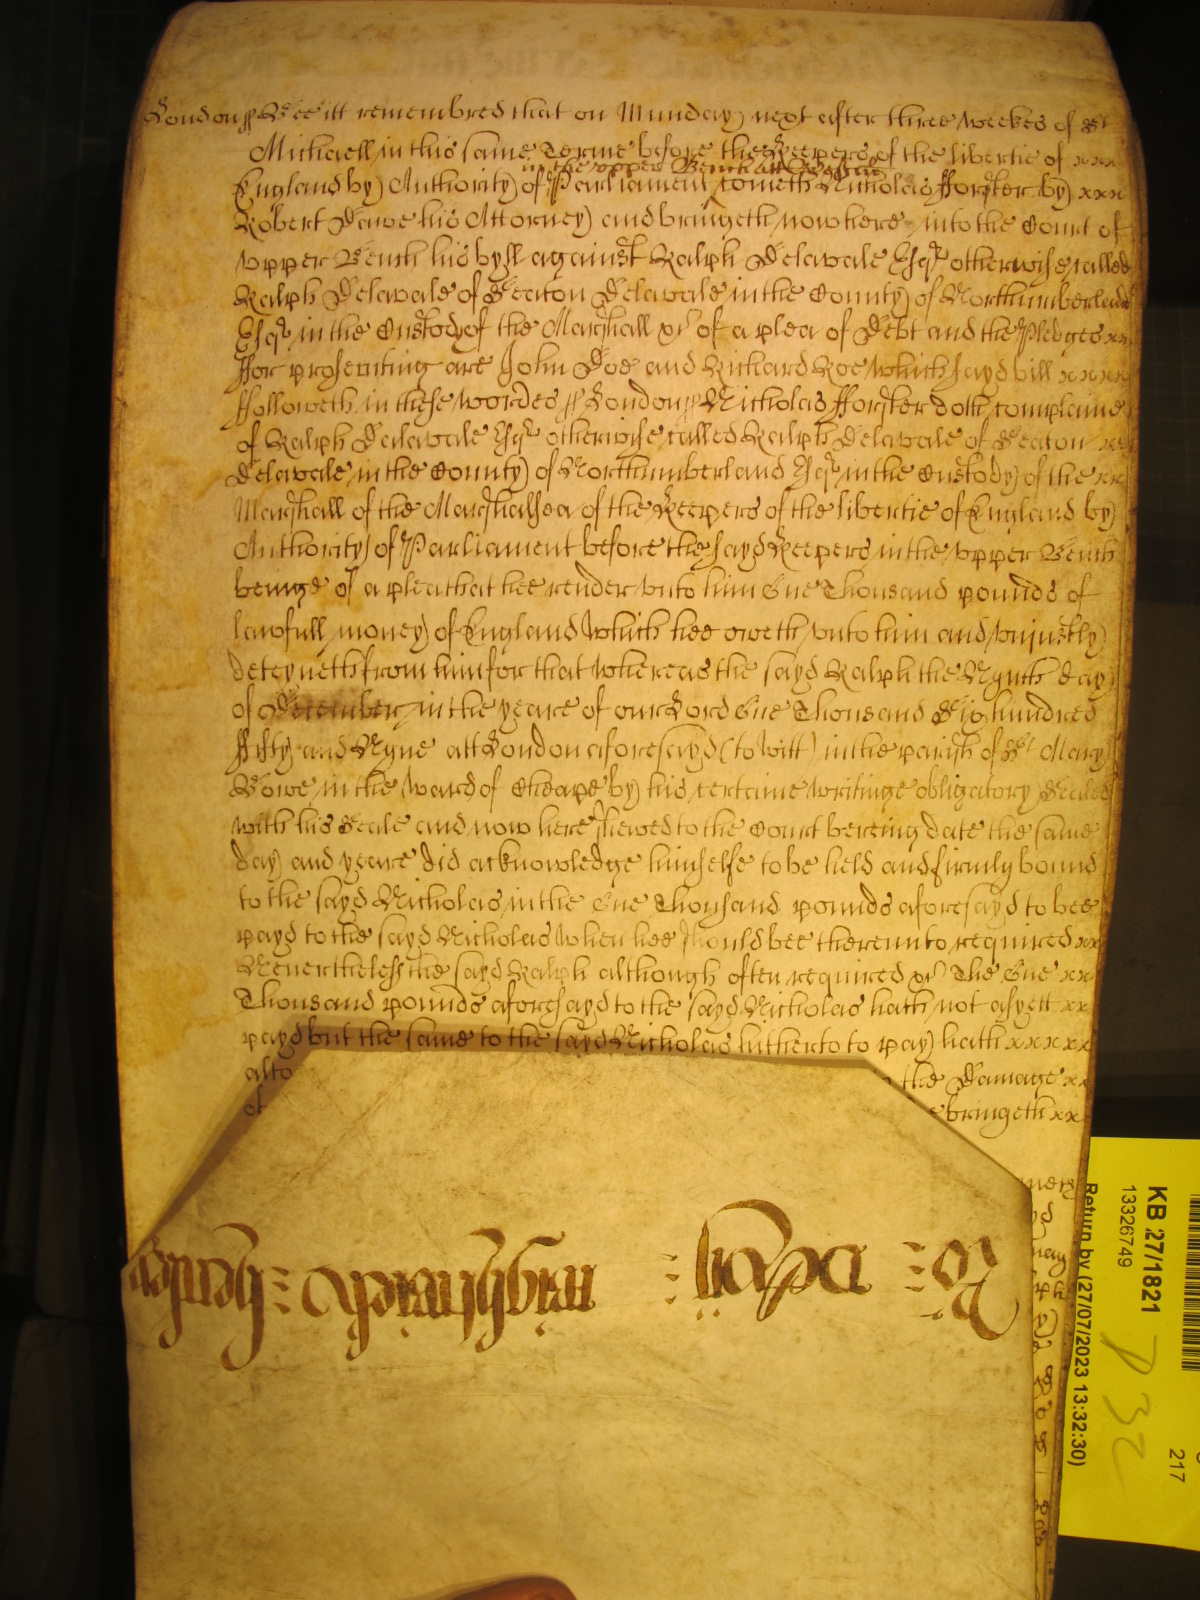 London ss Bee itt remembred that on Munday next after three weekes of St
Michaell in this same Terme before the Keepers of the libertie of xxx
in the upper Bench att Westmr
England by Authority of Parliament cometh Nicholas Forster by xxx
Robert Dawe his Attorney and bringeth now here into the Court of
upper Bench his byll against Ralph Delavale Esqr otherwise called
Ralph Delavale of Seaton Delavale in the County of Northumberland
Esqr in the Custody of the Marshall &c of a plea of Debt and the Pledges xx
ffor prosecuting are John Doe and Richard Roe which sayd bill xxxx
ffolloweth in these wordes ss London ss Nicholas Forster doth complaine
of Ralph Delavale Esqr otherwise called Ralph Delavale of Seaton xx
Delavale in the County of Northumberland Esqr in the Custody of the xx
Marshall of the Marshalsea of the Keepers of the libertie of England by
Authority of Parliament before the sayd Keepers in the upper Bench
beinge of a plea that hee render unto him One Thousand pounds of
lawfull money of England which hee oweth unto him and uniustly
deteyneth from him for that whereas the sayd Ralph the Nynth day
of December in the yeare of our Lord One Thousand Six hundred
ffifty and Nyne att London aforesayd (to witt) in the parish of St Mary
Bowe in the ward of Cheape by his certaine writinge obligatory Sealed
with his Seale and now here shewed to the Court bereing date the same
day and yeare did acknowledge himselfe to be held and firmly bound
to the sayd Nicholas in the One Thousand pounds aforesayd to bee
payd to the sayd Nicholas when hee should bee thereunto required xx
Nevertheless the sayd Ralph although often required &c The One xx
Thousand pounds aforesayd to the sayd Nicholas hath not as yett xx
payd but the same to the sayd Nicholas hitherto to pay hath xxxxx
alto
the Damage xx
bringeth xx
KB 27/1821
13326749
Return by (27/07/2023 13:32:30)
217
P32